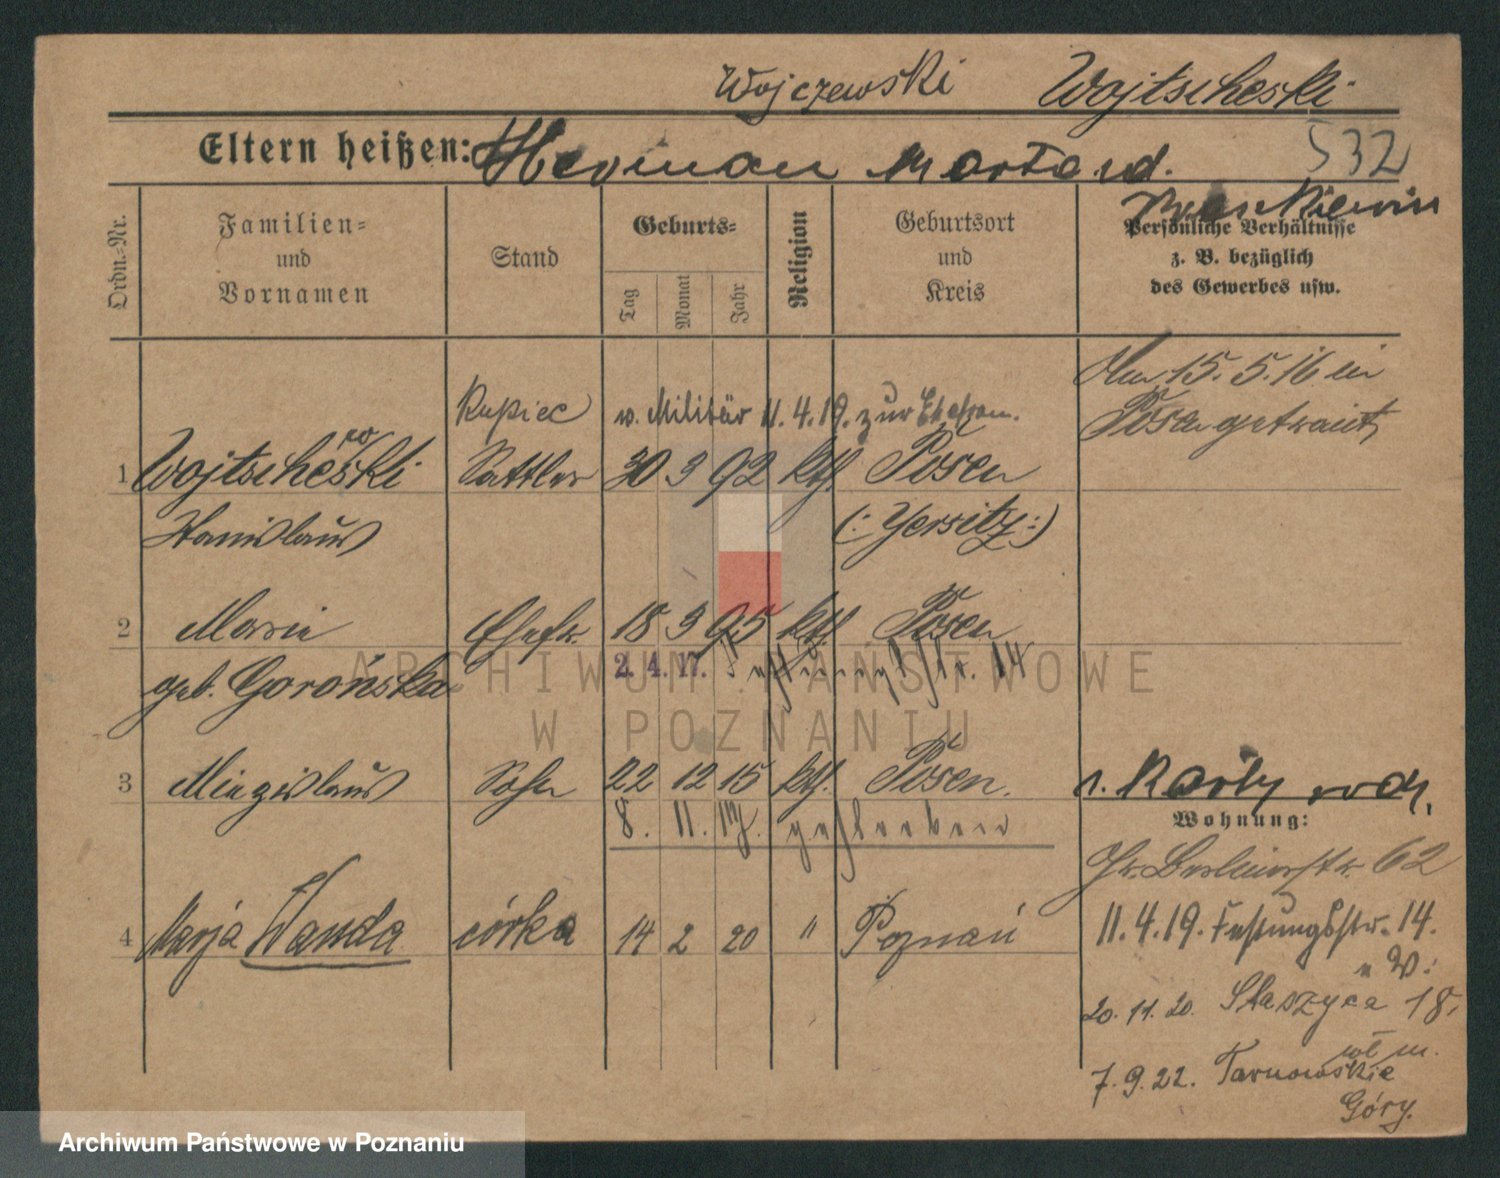 Wojczewski Wojtscheski
Eltern heißen: Herman Marta nd.
532
Ordn.-Nr.
Familien-
und
Vornamen
Stand
Geburts-
Tag
Monat
Jahr
Religion
Geburtsort
und
Kreis
Persönliche Verhältnisse
z. B. bezüglich
des Gewerbes usw.
Am 15. 5. 16 in
Posen getraut
Kupiec v. Militär 11. 4. 19. zur
1 Wojtscheski Sattler 30 3 92 kth. Posen
Stanislaus (: Jersitz :)
2 Marie Ehefr. 18 3 95 kth. Posen
geb. Gorońska 2. 4. 17. Festungsstr. 14
3 Miezislaus Sohn 22 12 15 kth. Posen.
8. 11. 17. gestorben
Wohnung:
Gr. Berlinerstr. 62
4 Marja Wanda córka 14 2 20 " Poznań
11. 4. 19. Festungsstr. 14.
20. 11. 20. Staszyca 18.
7. 9. 22. Tarnowskie
Góry.
ARCHIWUM PAŃSTWOWE
W POZNANIU
Archiwum Państwowe w Poznaniu